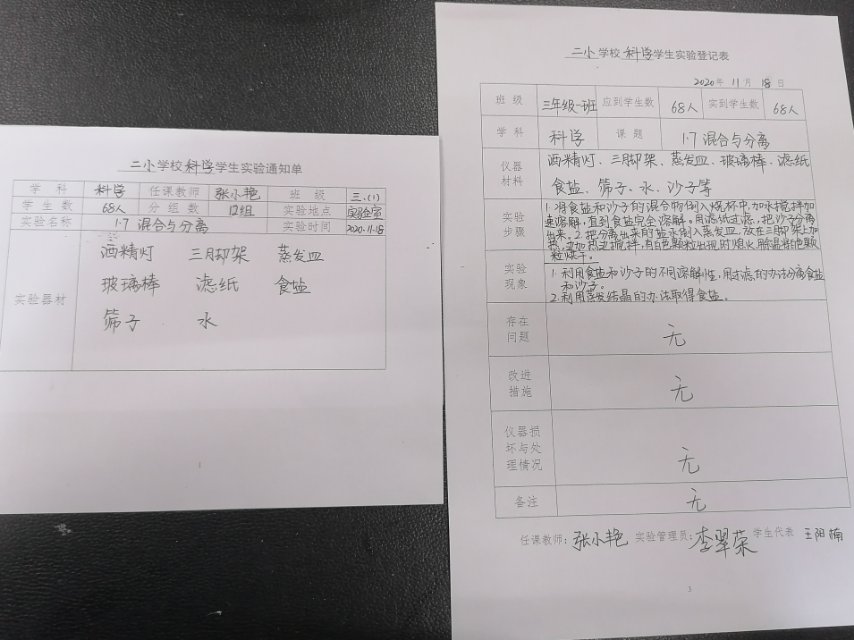 二小学校科学学生实验通知单
学科 科学 任课教师 张小艳 班级 三.(1)
学生数 68人 分组数 12组 实验地点 实验室
实验名称 1.7 混合与分离 实验时间 2020.11.18
实验器材
酒精灯 三脚架 蒸发皿
玻璃棒 滤纸 食盐
筛子 水
1
二小学校科学学生实验登记表
2020年 11月 18日
班级 三年级一班 应到学生数 68人 实到学生数 68人
学科 科学 课题 1.7 混合与分离
仪器材料
酒精灯、三脚架、蒸发皿、玻璃棒、滤纸
食盐、筛子、水、沙子等
实验步骤
1.将食盐和沙子的混合物倒入烧杯中,加水搅拌加
速溶解,直到食盐完全溶解。用滤纸过滤,把沙子分离
出来。2.把分离出来的盐水倒入蒸发皿,放在三脚架上加
热,边加热边搅拌,有白色颗粒出现时熄火,用余温将白色颗
粒烘干。
实验现象
1.利用食盐和沙子的不同溶解性,用过滤的办法分离食盐
和沙子。
2.利用蒸发结晶的办法取得食盐。
存在问题 无
改进措施 无
仪器损坏与处理情况 无
备注 无
任课教师:张小艳 实验管理员:李翠荣 学生代表 王阳楠
3